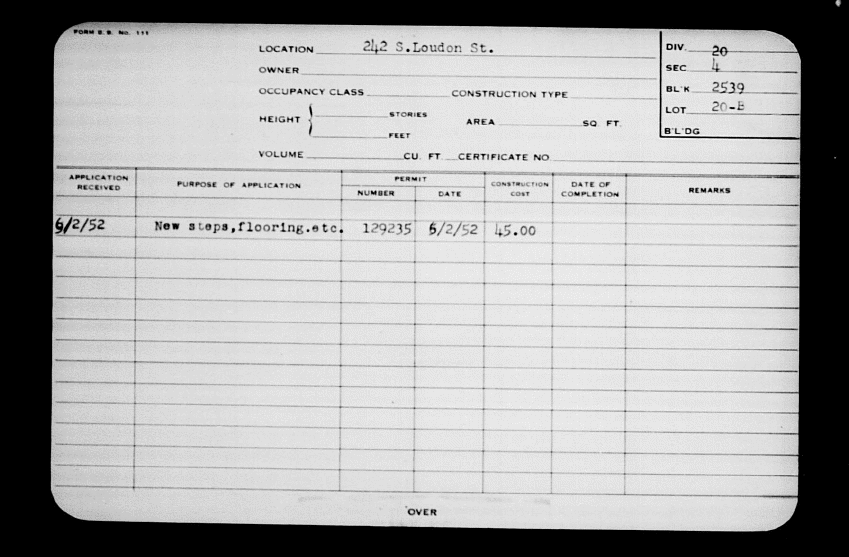 FORM B. B. No. 111
LOCATION 242 S.Loudon St.
OWNER
OCCUPANCY CLASS CONSTRUCTION TYPE
HEIGHT { STORIES
FEET
AREA SQ. FT.
VOLUME CU. FT. CERTIFICATE NO
DIV. 20
SEC 4
BL'K 2539
LOT 20-B
B'L'DG
APPLICATION RECEIVED PURPOSE OF APPLICATION PERMIT NUMBER DATE CONSTRUCTION COST DATE OF COMPLETION REMARKS
6/2/52 New steps,flooring.etc. 129235 6/2/52 45.00
OVER